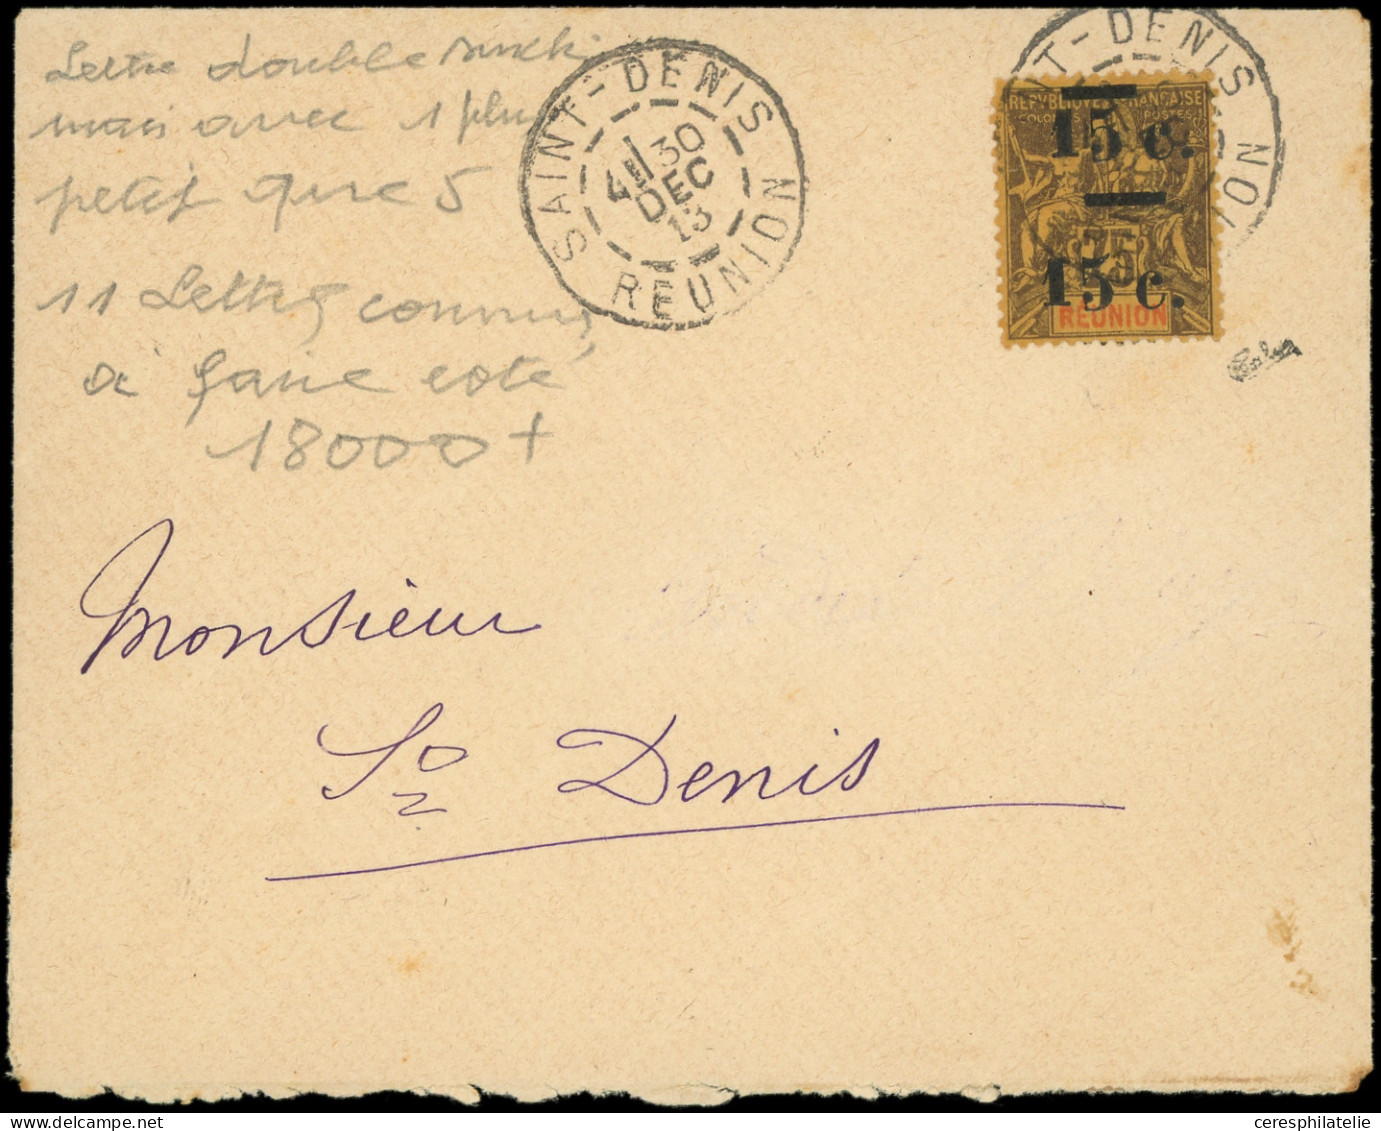 Lettre double surch
mais avec 1 plus
petit que 5
11 Lettres connues
à faire coté
18000+
SAINT-DENIS
4E/30
DEC
13
REUNION
T-DENIS
NOI
REPUBLIQUE FRANÇAISE
COLO POSTES
15 c.
75
15 c.
REUNION
Monsieur
St Denis
ceresphilatelie